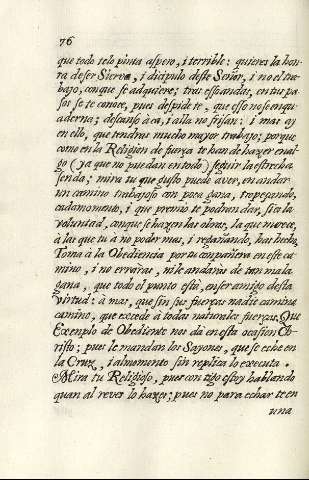 76
que todo te lo pinta aspero, i terrible: quieres la hon
ra de ser Sierva, i dicipulo deste Señor, i no el tra
bajo, conque se adquiere; tras esso andas, en tus pa
sos se te conoce, pues despidete, que esso no se enqu
aderna; descanso acà, i alla no frisan; i mas ay
en ello, que tendras mucho mayor trabajo; porque
como en la Religion de fuerza te han de hazer en al
go (ya que no puedan en todo) seguir la estrecha
senda; mira tu que gusto puede aver, en andar
un camino trabajoso con poca gana, tropesando,
cada momento, i que premio te podran dar, si es la
voluntad, conque se hazen las obras, la que merece,
à las que tu à no poder mas, i regañando, has hecho.
Toma à la Obediencia por tu compañera en este ca
mino, i no erraras, ni le andaràs de tan mala
gana, que todo el punto està, en ser amigo desta
virtud: à mas, que sin sus fuerças nadie camina
camino, que excede à todas naturales fuerças. Que
Exemplo de Obediente nos dà en esta ocasion Ch-
risto; pues le mandan los Sayones, que se eche en
la Cruz, i al momento sin replica lo executa.
Mira tu Religioso, pues contigo estoy hablando
quan al reves lo hazes; pues no para echarte en
una